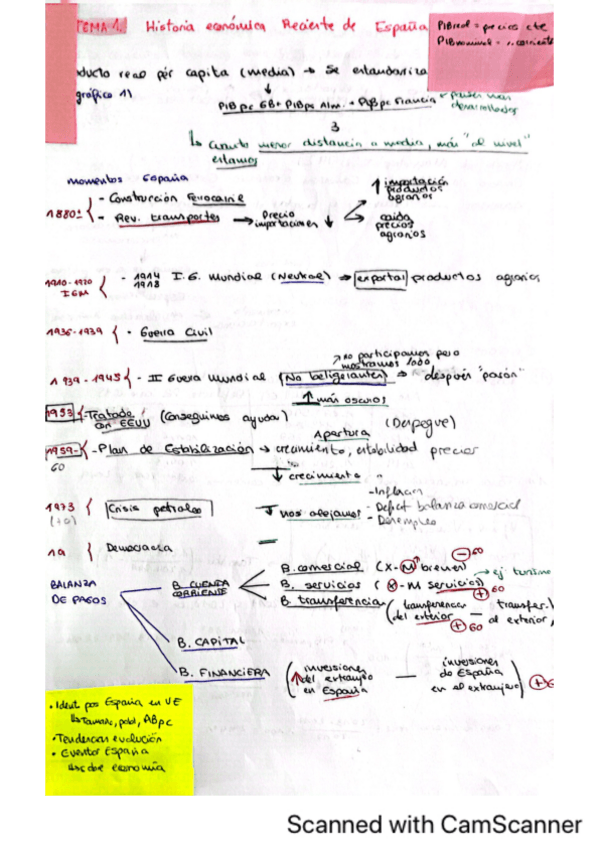 TEMA 1. Historia económica Reciente de España
PIBreal = precios cte
PIBnominal = " corriente
ducto real pér capita (media) → Se estandariza
gráfico 1)
PIBpc GB + PIBpc Alm. + PIBpc Francia
países más desarrollados
3
↳ Cuanto menor distancia a media, más "al nivel" estamos
momentos España
1880: { - Construcción ferrocarril
- Rev. transportes → Precio importaciones ↓
↑ importación productos agrarios
caida precios agrarios
1910-1920 IGM { - 1914 1918 I.G. Mundial (Neutral) → exportar productos agrarios
1936-1939 { - Guerra Civil
→ no participamos pero mostramos lado
1939-1945 { - II Guerra Mundial (No beligerantes) → después "pasón"
↑ más oscuros
1953 { - Tratado con EEUU (Conseguimos ayuda)
Apertura (Despegue)
1959-60 { - Plan de Estabilización → crecimiento, estabilidad precios
↓ crecimiento
1973 { Crisis petroleo
↓ nos alejamos
- Inflación
- Deficit balanza comercial
- Desempleo
{ Democracia
BALANZA DE PAGOS
B. CUENTA CORRIENTE
B. comercial (X-M↑ bienes) ⊖ 60
B. servicios (X-M servicios) → ej turismo ⊕ 60
B. transferencia (transferencias del exterior — transfer. al exterior) ⊕ 60
B. CAPITAL
B. FINANCIERA (↑ inversiones del extranjero en España — inversiones de España en el extranjero) ⊕
• Ident. pos España en UE
↳ Tamaño, pobl, PIBpc
• Tendencias evolución
• Eventos España
sobre economía
Scanned with CamScanner